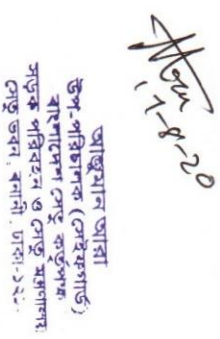 17-8-20
আরা
উপ-পরিচালক
বাংলাদেশ সেতু কর্তৃপক্ষ
সড়ক পরিবহন ও সেতু মন্ত্রণালয়
সেতু ভবন, বনানী, ঢাকা-১২১২.